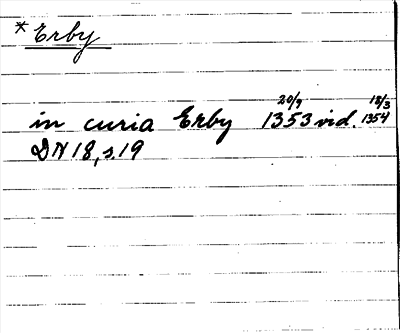 * Erby
in curia Erby 1353 20/9 vid. 1354 18/3
DN 18, s. 19